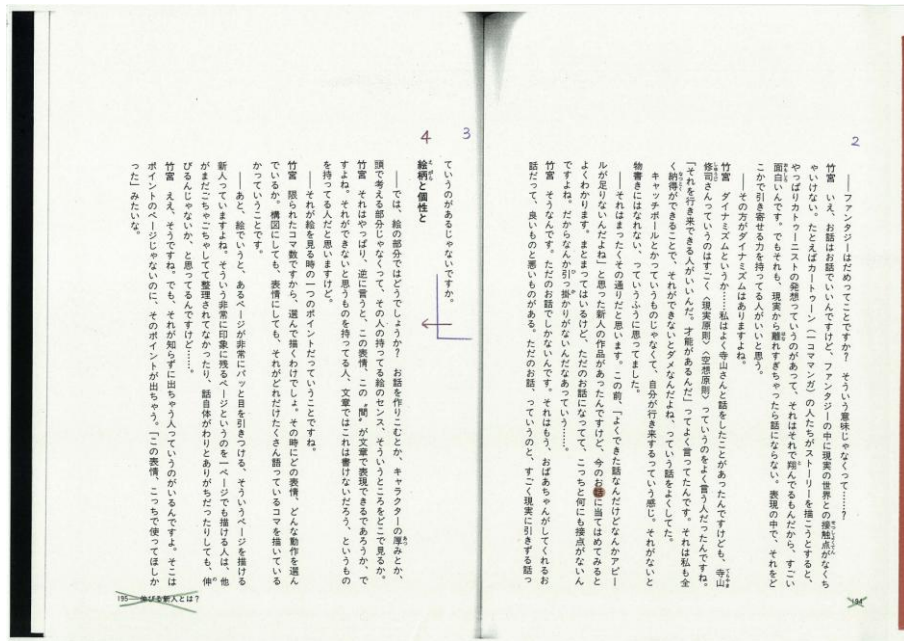 2
――ファンタジーはだめってことですか? そういう意味じゃなくって……?
竹宮 いえ、お話はお話でいいんですけど、ファンタジーの中に現実の世界との接触点がなくち
ゃいけない。たとえばカートゥーン(一コママンガ)の人たちがストーリーを描こうとすると、
やっぱりカトゥーニストの発想っていうのがあって、それはそれで翔んでるもんだから、すごい
面白いんです。でもそれも、現実から離れすぎちゃったら話にならない。表現の中で、それをど
こかで引き寄せる力を持ってる人がいいと思う。
――その方がダイナミズムはありますよね。
竹宮 ダイナミズムというか……私はよく寺山さんと話をしたことがあったんですけども、寺山
修司さんっていうのはすごく〈現実原則〉〈空想原則〉っていうのをよく言う人だったんですね。
「それを行き来できる人がいいんだ。才能があるんだ」ってよく言ってたんです。それは私も全
く納得ができることで、それができないとダメなんだよね、っていう話をよくしてた。
キャッチボールとかっていうものじゃなくて、自分が行き来するっていう感じ。それがないと
物書きにはなれない、っていうふうに思ってました。
――それはまったくその通りだと思います。この前、「よくできた話なんだけどなんかアピー
ルが足りないんだよね」と思った新人の作品があったんですけど、今のお話に当てはめてみると
よくわかります。まとまってはいるけど、ただのお話になってて、こっちと何にも接点がないん
ですよね。だからなんか引っ掛かりがないんだなあっていう……。
竹宮 そうなんです。ただのお話でしかないんです。それはもう、おばあちゃんがしてくれるお
話だって、良いものと悪いものがある。ただのお話、っていうのと、すごく現実に引きずる話っ
194
3
ていうのがあるじゃないですか。
4
絵柄と個性と
――では、絵の部分ではどうでしょうか? お話を作りこむとか、キャラクターの厚みとか、
頭で考える部分じゃなくって、その人の持ってる絵のセンス、そういうところをどこで見るか。
竹宮 それはやっぱり、逆に言うと、この表情、この〝間〟が文章で表現できるであろうか、で
すよね。それができないと思うものを持ってる人、文章ではこれは書けないだろう、というもの
を持ってる人だと思いますけど。
――それが絵を見る時の一つのポイントだっていうことですね。
竹宮 限られたコマ数ですから、選んで描くわけでしょ。その時にどの表情、どんな動作を選ん
でいるか。構図にしても、表情にしても、それがどれだけたくさん語っているコマを描いている
かっていうことです。
――あと、絵でいうと、あるページが非常にパッと目を引きつける、そういうページを描ける
新人っていますよね。そういう非常に印象に残るページというのを一ページでも描ける人は、他
がまだごちゃごちゃしてて整理されてなかったり、話自体がわりとありがちだったりしても、伸
びるんじゃないか、と思ってるんですけど……。
竹宮 ええ、そうですね。でも、それが知らずに出ちゃう人っていうのがいるんですよ。そこは
ポイントのページじゃないのに、そのポイントが出ちゃう。「この表情、こっちで使ってほしか
った」みたいな。
195――伸びる新人とは?